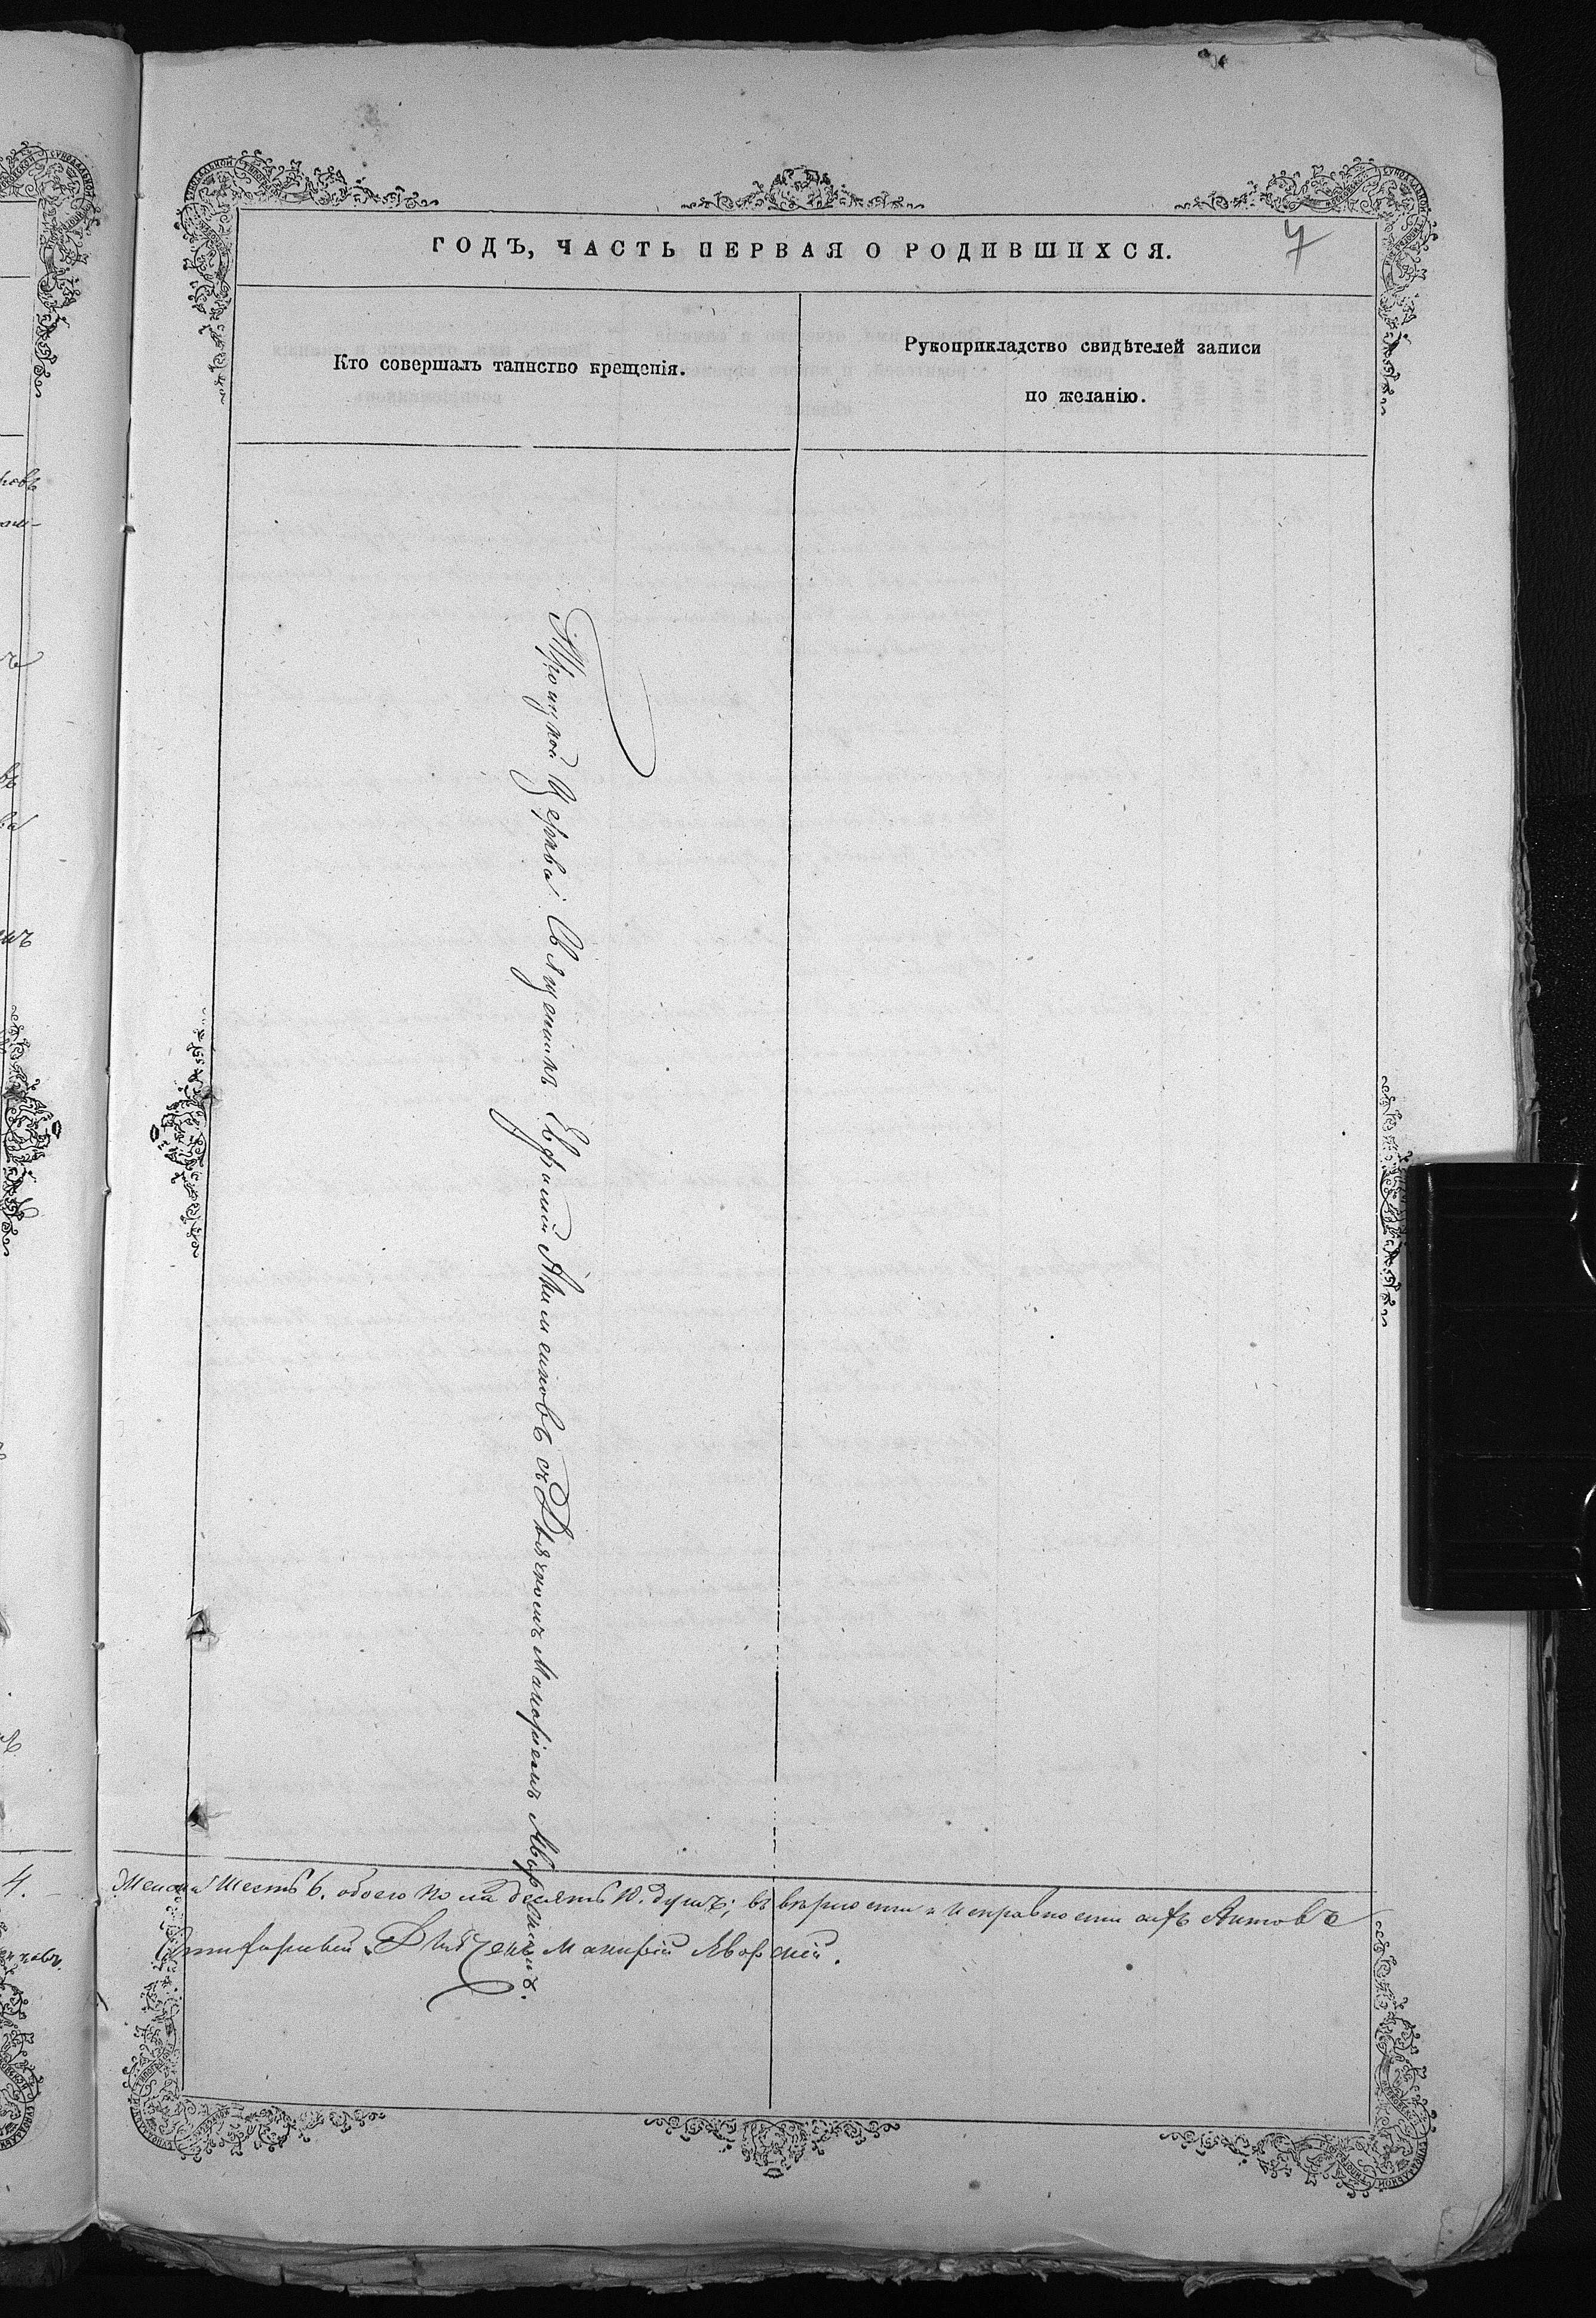 ГОДЪ, ЧАСТЬ ПЕРВАЯ О РОДИВШИХСЯ.
7
Кто совершалъ таинство крещенія.
Рукоприкладство свидѣтелей записи
по желанію.
Троицкой Церкви Священникъ Евфимій Акименковъ съ Дьячкомъ Макаріемъ Яворскимъ.
4.
Женска шесть 6. обоего пола десять 10. душъ; въ вѣрности и исправности сихъ Актовъ
Дьячекъ Макарій Яворскій.